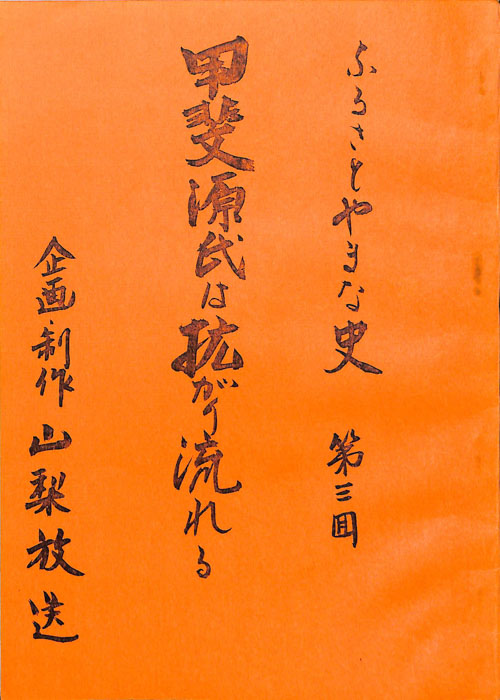 ふるさとやまな史 第三回
甲斐源氏は拡がり流れる
企画・制作 山梨放送